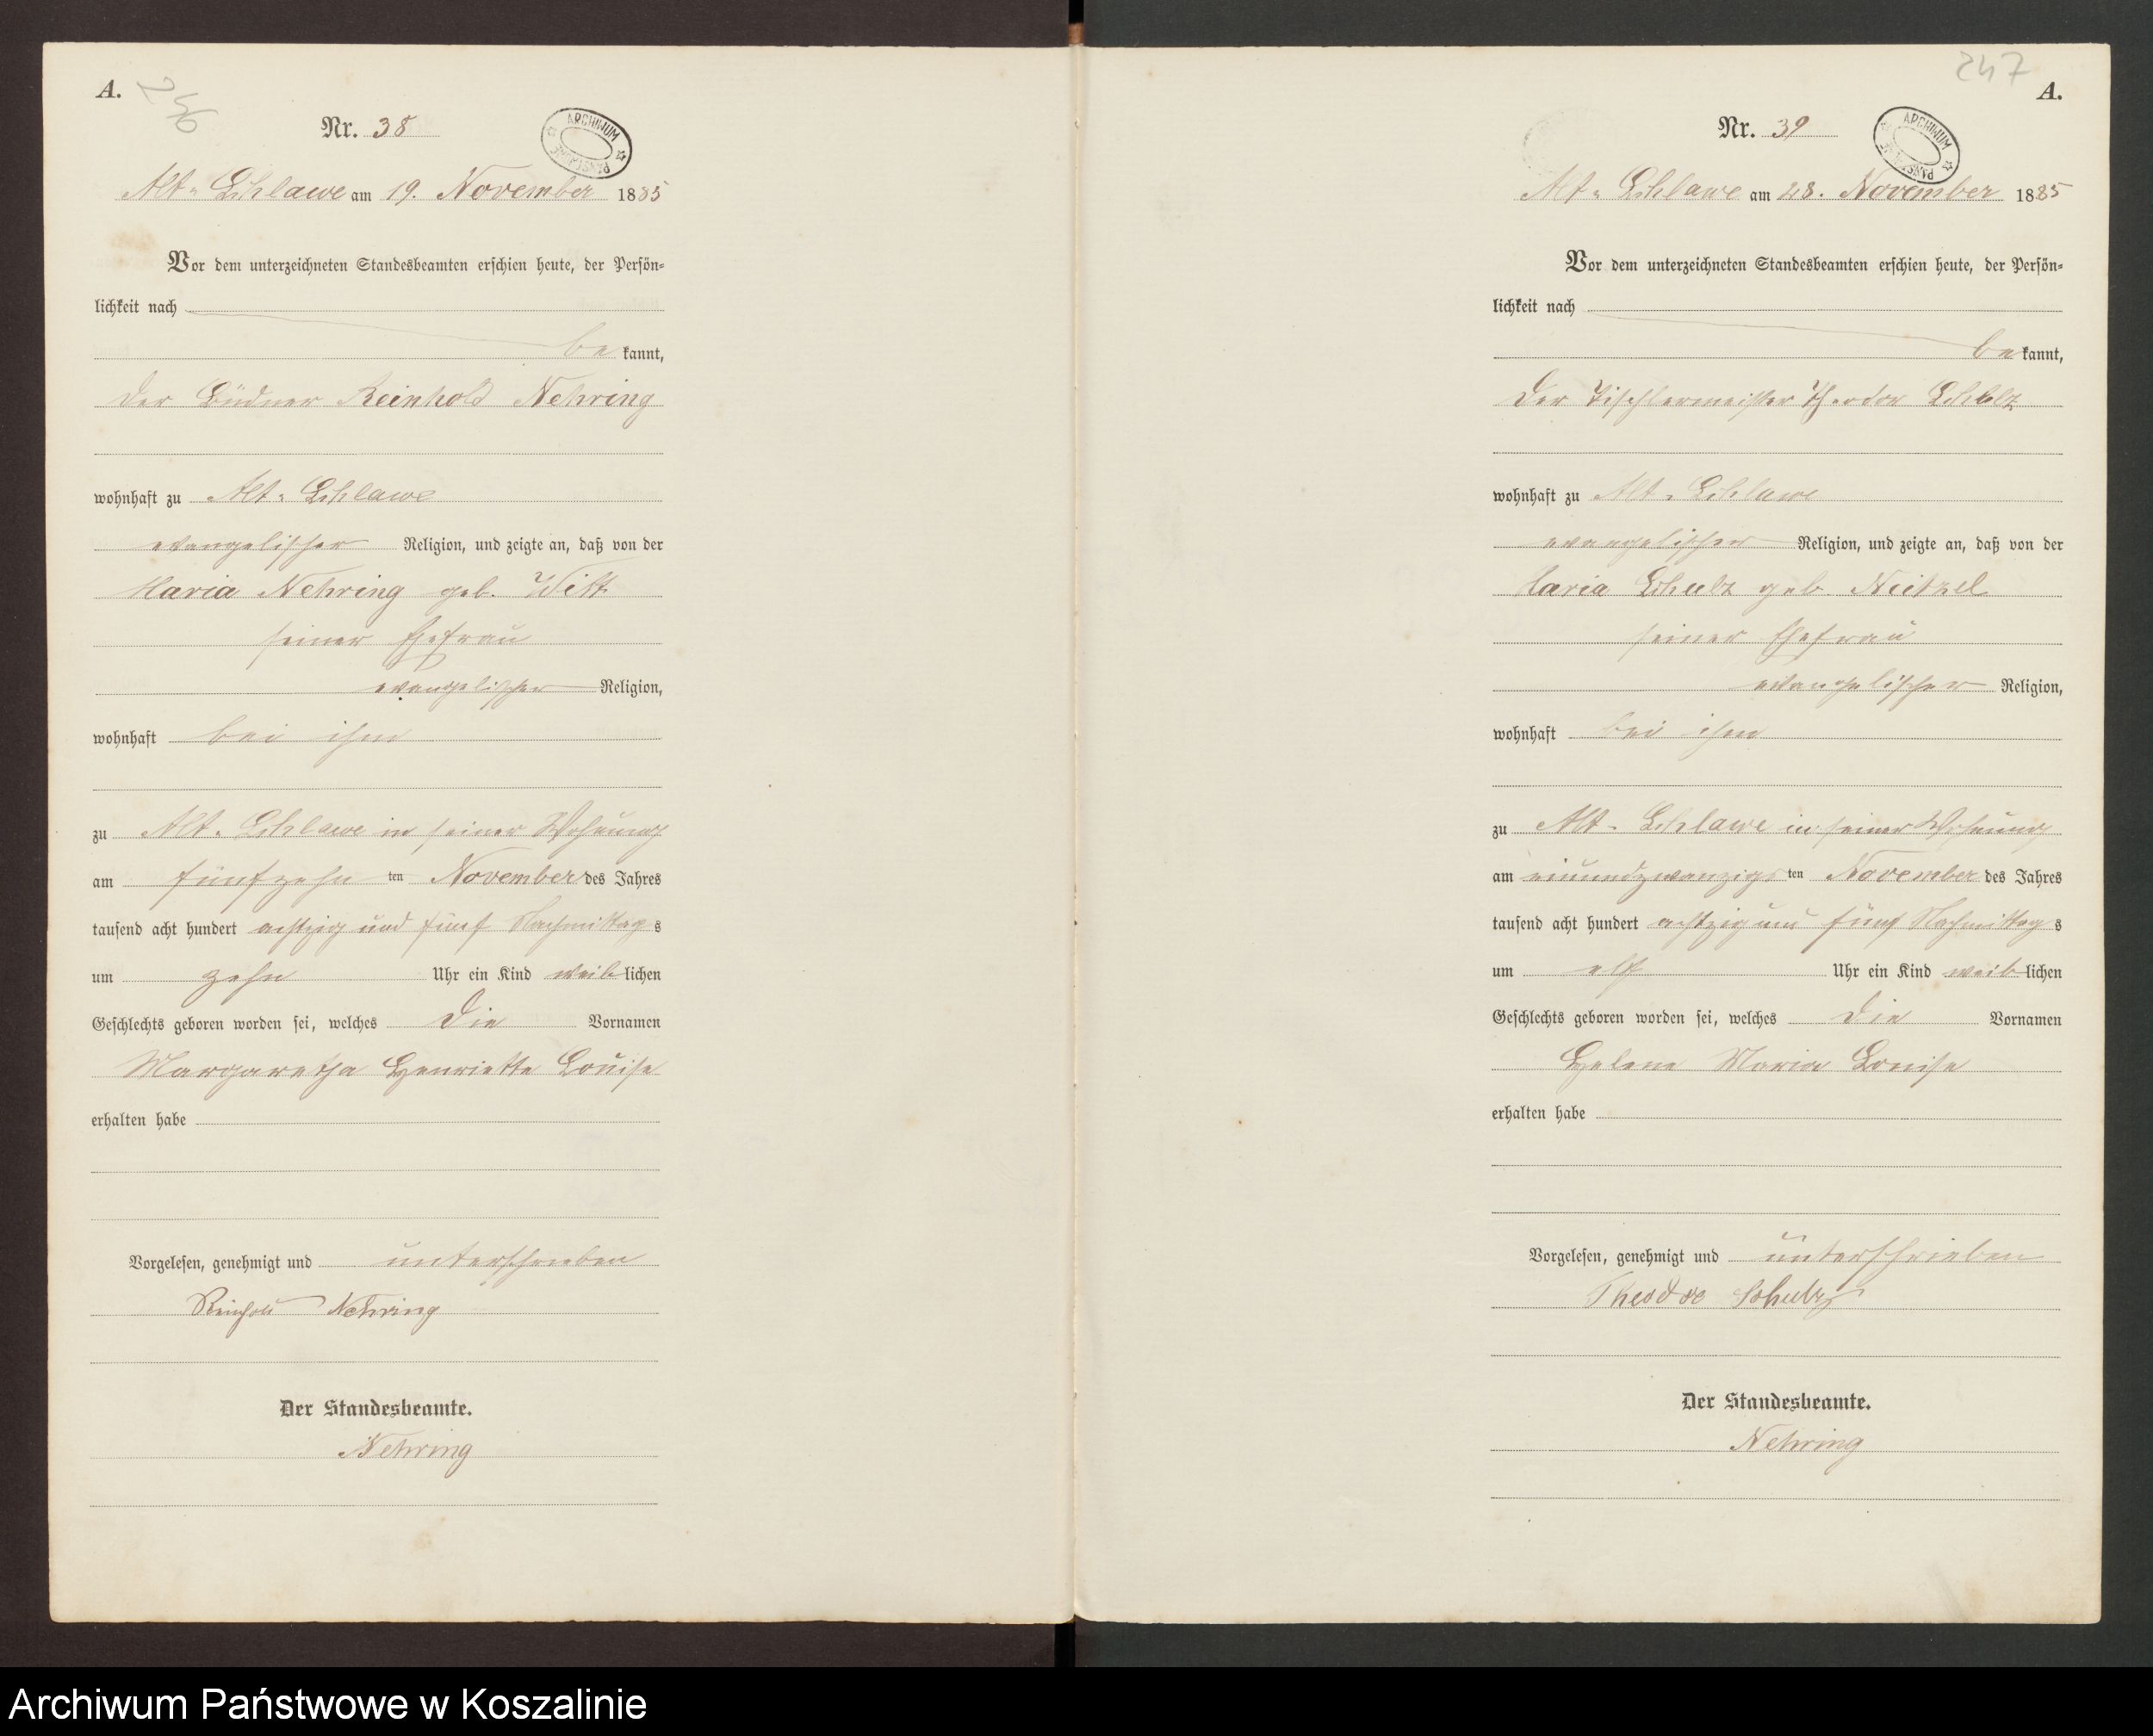 A.
246
Nr. 38
ARCHIWUM PAŃSTWOWE
Alt-Schlawe am 19. November 1885
Vor dem unterzeichneten Standesbeamten erschien heute, der Persön-
lichkeit nach
be kannt,
der Büdner Reinhold Nehring
wohnhaft zu Alt-Schlawe
evangelischer Religion, und zeigte an, daß von der
Maria Nehring geb. Witt
seiner Ehefrau
evangelischer Religion,
wohnhaft bei ihm
zu Alt-Schlawe in seiner Wohnung
am fünfzehn ten November des Jahres
tausend acht hundert achtzig und fünf Nachmittag s
um zehn Uhr ein Kind weib lichen
Geschlechts geboren worden sei, welches die Vornamen
Margaretha Henriette Louise
erhalten habe
Vorgelesen, genehmigt und unterschrieben
Reinhold Nehring
Der Standesbeamte.
Nehring
247
A.
Nr. 39
ARCHIWUM PAŃSTWOWE
Alt-Schlawe am 28. November 1885
Vor dem unterzeichneten Standesbeamten erschien heute, der Persön-
lichkeit nach
be kannt,
der Tischlermeister Theodor Schulz
wohnhaft zu Alt-Schlawe
evangelischer Religion, und zeigte an, daß von der
Maria Schulz geb. Neitzel
seiner Ehefrau
evangelischer Religion,
wohnhaft bei ihm
zu Alt-Schlawe in seiner Wohnung
am einundzwanzigs ten November des Jahres
tausend acht hundert achtzig und fünf Nachmittag s
um elf Uhr ein Kind weib lichen
Geschlechts geboren worden sei, welches die Vornamen
Helene Maria Louise
erhalten habe
Vorgelesen, genehmigt und unterschrieben
Theodor Schulz
Der Standesbeamte.
Nehring
Archiwum Państwowe w Koszalinie